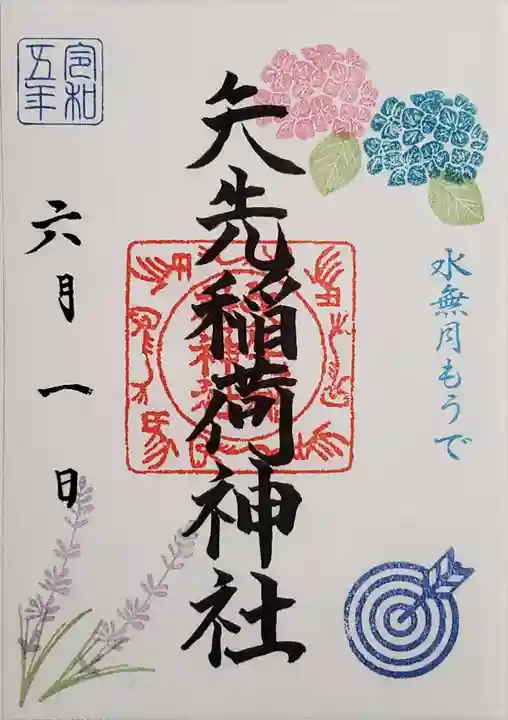 水無月もうで
矢先稲荷神社
令和
五年
六月一日